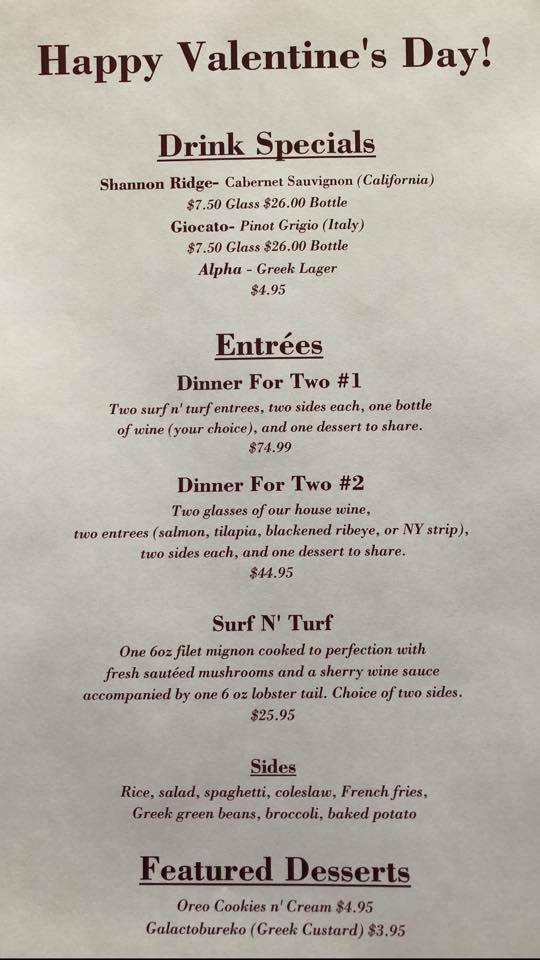 Happy Valentine's Day!
Drink Specials
Shannon Ridge- Cabernet Sauvignon (California)
$7.50 Glass $26.00 Bottle
Giocato- Pinot Grigio (Italy)
$7.50 Glass $26.00 Bottle
Alpha - Greek Lager
$4.95
Entrées
Dinner For Two #1
Two surf n' turf entrees, two sides each, one bottle
of wine (your choice), and one dessert to share.
$74.99
Dinner For Two #2
Two glasses of our house wine,
two entrees (salmon, tilapia, blackened ribeye, or NY strip),
two sides each, and one dessert to share.
$44.95
Surf N' Turf
One 6oz filet mignon cooked to perfection with
fresh sautéed mushrooms and a sherry wine sauce
accompanied by one 6 oz lobster tail. Choice of two sides.
$25.95
Sides
Rice, salad, spaghetti, coleslaw, French fries,
Greek green beans, broccoli, baked potato
Featured Desserts
Oreo Cookies n' Cream $4.95
Galactobureko (Greek Custard) $3.95